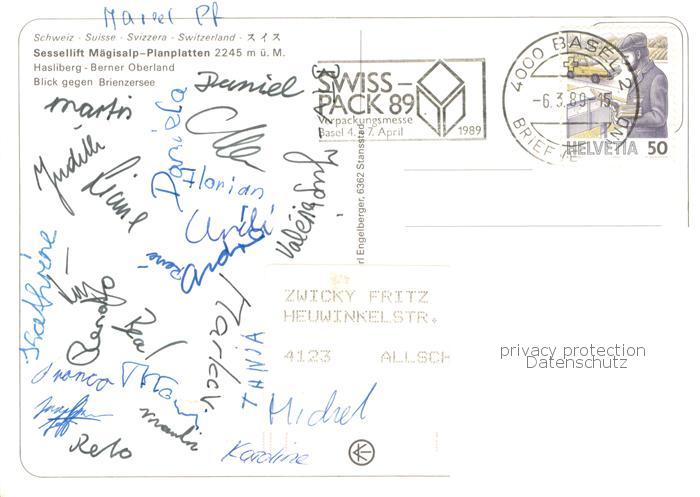 Marcel Pf
Schweiz - Suisse - Svizzera - Switzerland - スイス
Sessellift Mägisalp-Planplatten 2245 m ü. M.
Hasliberg - Berner Oberland
Blick gegen Brienzersee
Daniel
Martin
Daniela
Judith
Liane
Florian
Valérie
Urili
Andrea
René
Kathrine
Renato
Beat
Markus
TANJA
Franco
Martin
Reto
Michel
Karoline
SWISS-
PACK 89
Verpackungsmesse
Basel 4. - 7. April
1989
4000 BASEL 2
-6.3.89-15
BRIEFVERSAND
HELVETIA 50
rl Engelberger, 6362 Stansstad
ZWICKY FRITZ
HEUWINKELSTR.
4123 ALLSCH
privacy protection
Datenschutz